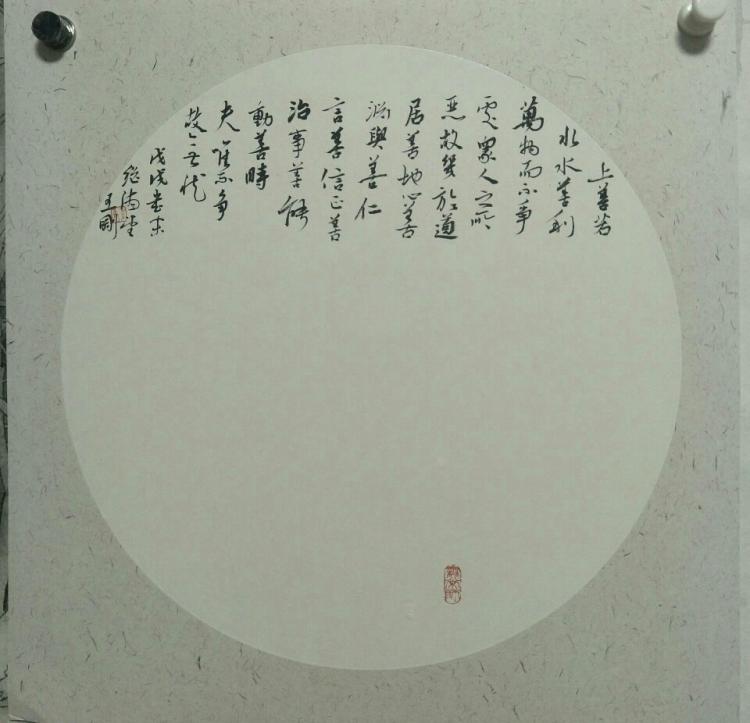 上善若
水水善利
萬物而不爭
處眾人之所
惡故幾於道
居善地心善
淵與善仁
言善信正善
治事善能
動善時
夫唯不爭
故無尤
戊戌
王剛